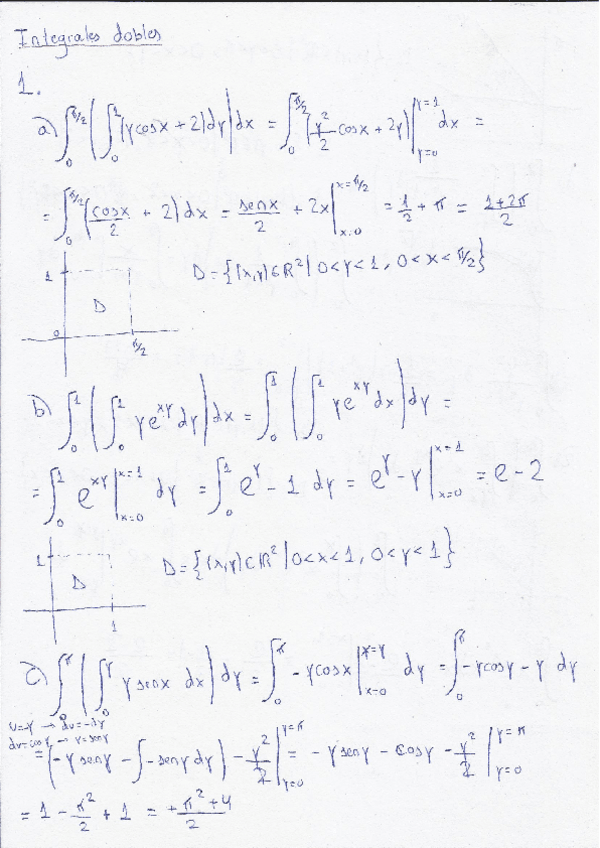 Integrales dobles
1.
a) ∫₀^{π/2} (∫₀^1 (ycosx + 2)dy) dx = ∫₀^{π/2} (y²/2 cosx + 2y)|_{y=0}^{y=1} dx =
= ∫₀^{π/2} (cosx/2 + 2) dx = senx/2 + 2x|_{x=0}^{x=π/2} = 1/2 + π = 1+2π/2
D = {(x,y)∈ℝ² | 0<y<1, 0<x<π/2}
1
D
0
π/2
b) ∫₀^1 (∫₀^1 ye^{xy} dy) dx = ∫₀^1 (∫₀^1 ye^{xy} dx) dy =
= ∫₀^1 e^{xy}|_{x=0}^{x=1} dy = ∫₀^1 e^y - 1 dy = e^y - y|_{x=0}^{x=1} = e - 2
1
D
1
D = {(x,y)∈ℝ² | 0<x<1, 0<y<1}
c) ∫₀^π (∫₀^y ysenx dx) dy = ∫₀^π -ycosx|_{x=0}^{x=y} dy = ∫₀^π -ycosy - y dy
u=-y → du=-dy
dv=cosy → v=seny
= (-yseny - ∫-seny dy) - y²/2|_{y=0}^{y=π} = -yseny - cosy - y²/2|_{y=0}^{y=π}
= 1 - π²/2 + 1 = +π²+4/2